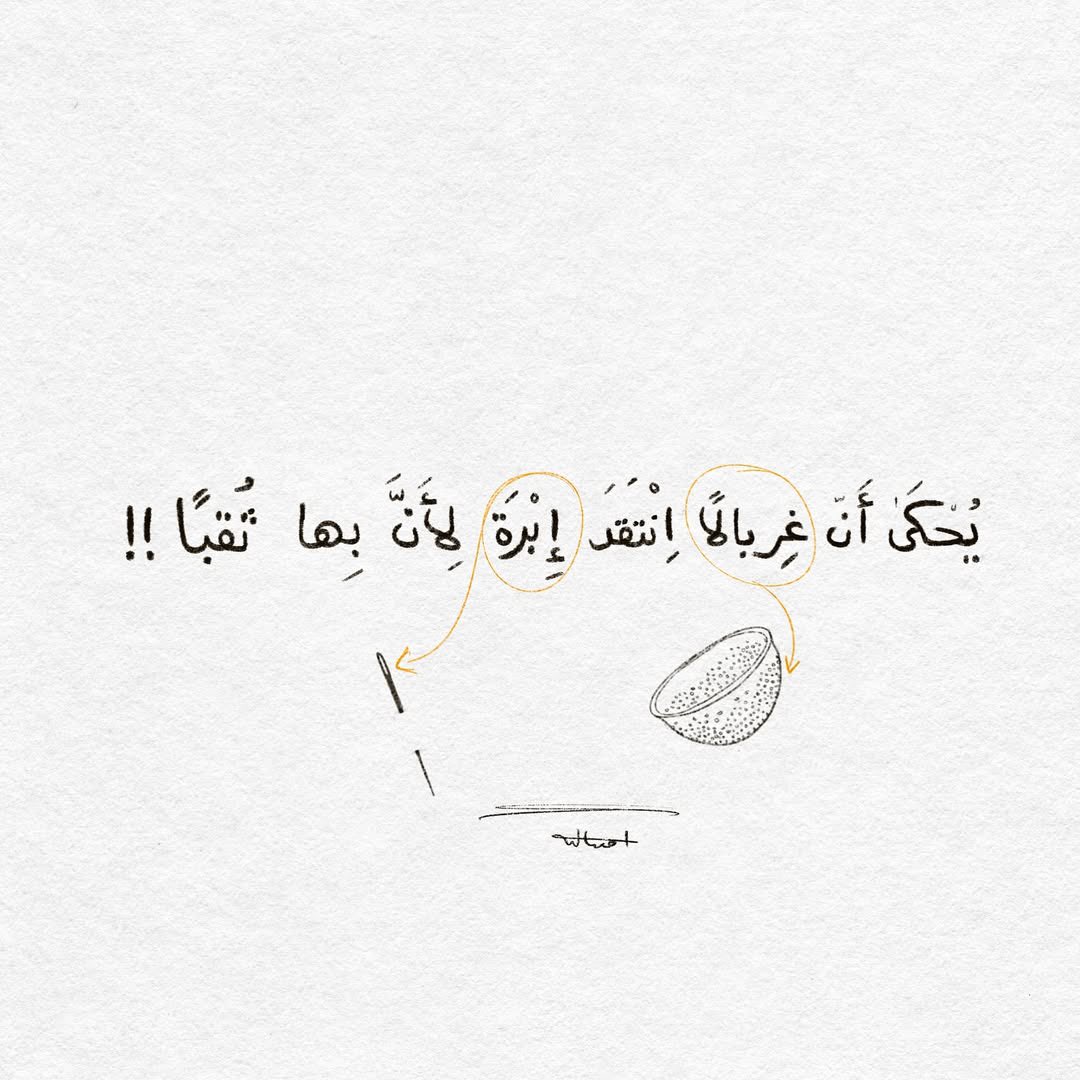 يُحْكَىٰ أَنّ غِربالًا اِنْتَقَدَ إِبْرَةَ لِأَنَّ بِها ثُقبًا !!